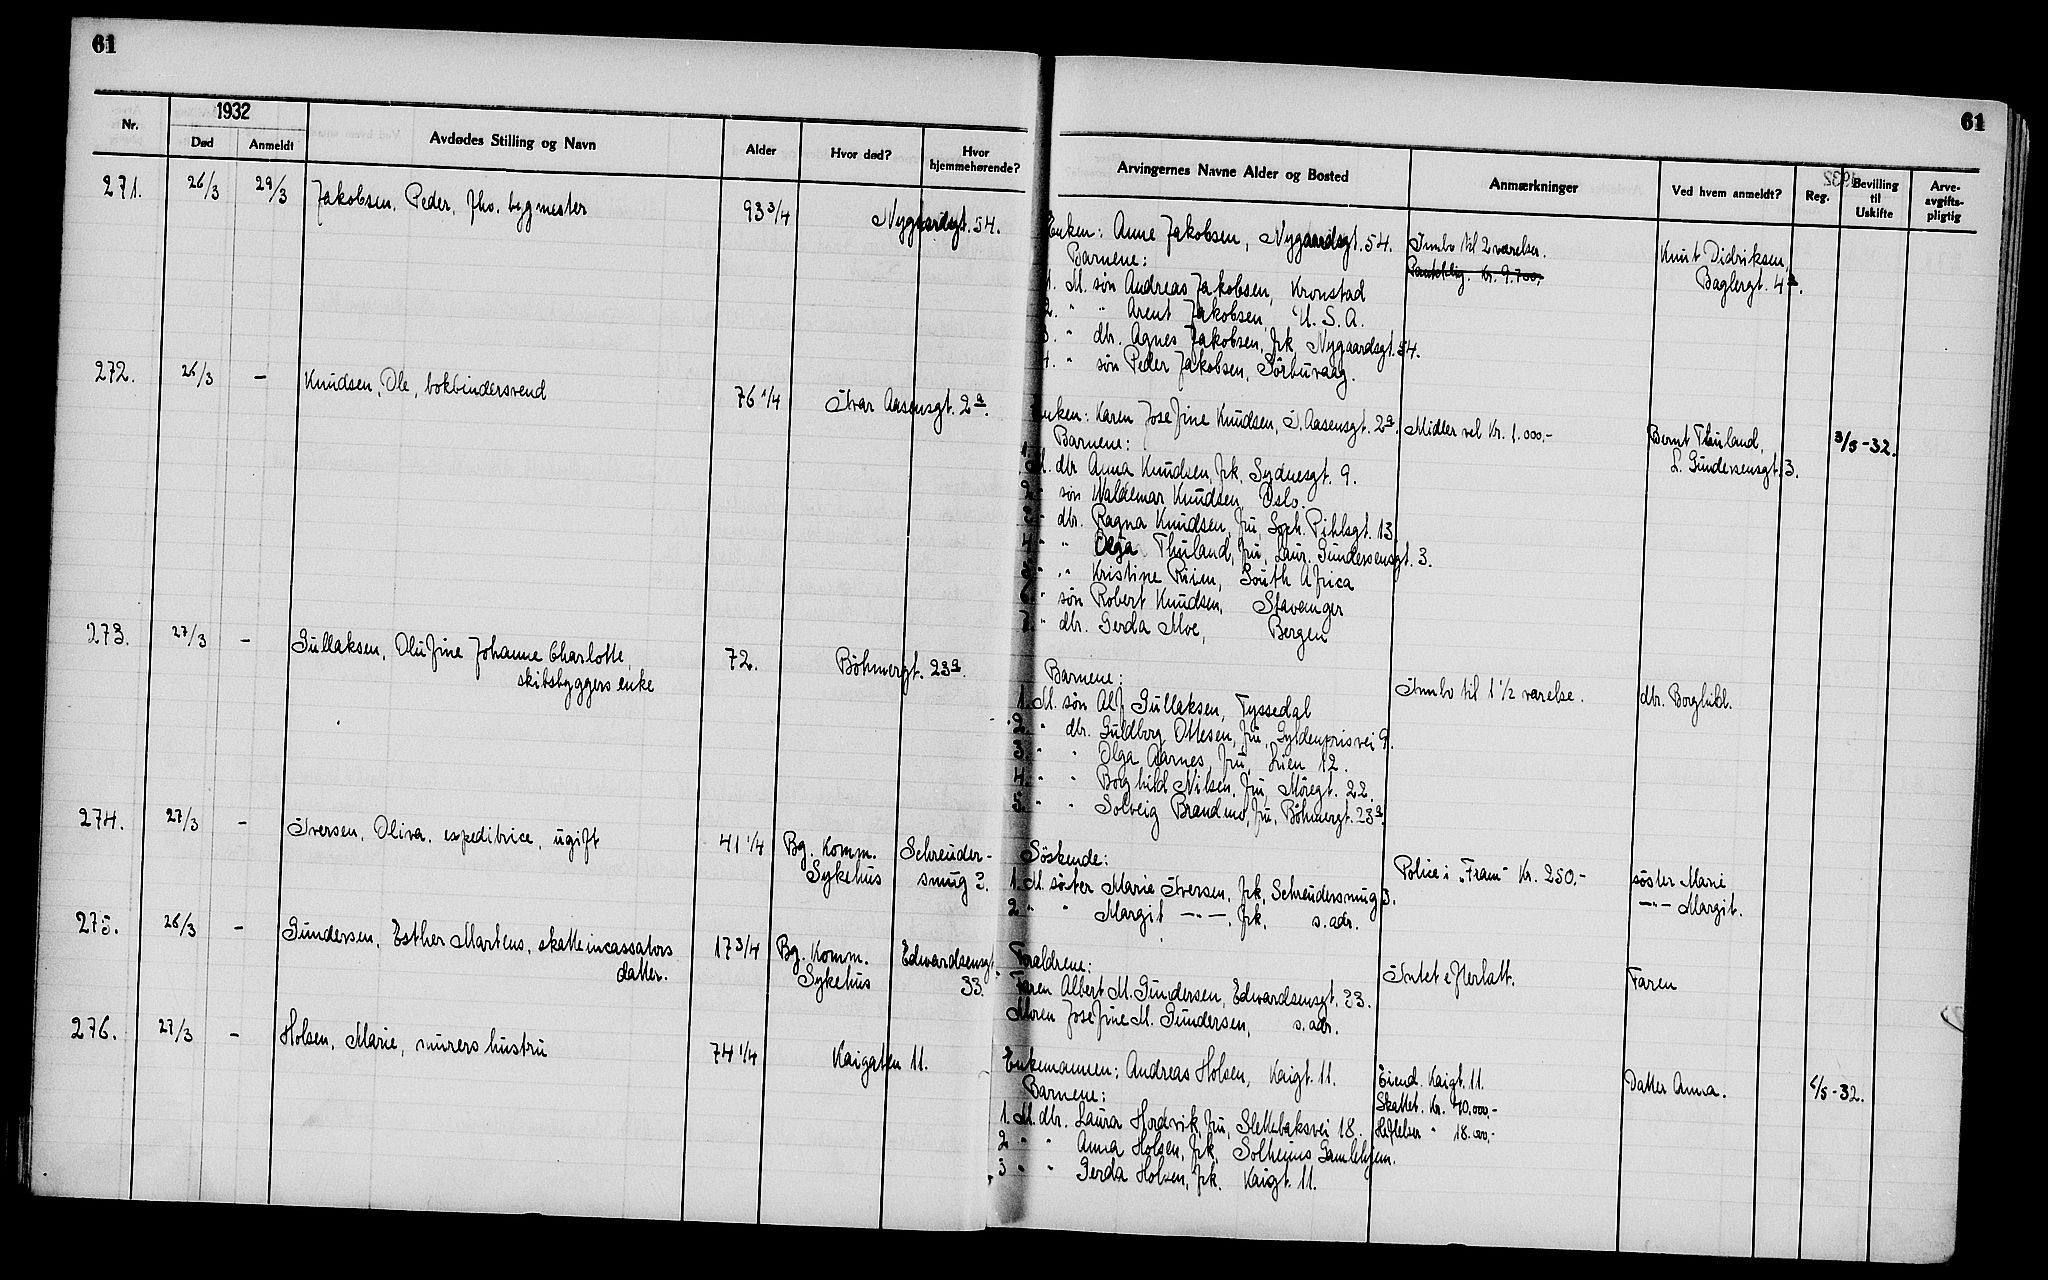 61
61
Nr.
1932
Død
Anmeldt
Avdødes Stilling og Navn
Alder
Hvor død?
Hvor hjemmehørende?
Arvingernes Navne Alder og Bosted
Anmærkninger
Ved hvem anmeldt?
Reg.
Bevilling til Uskifte
Arve-avgifts-pligtig
271. 26/3 29/3 Jakobsen, Peder, Jho. bygmester 93 3/4 Nygaardsgt. 54.
Enken: Anne Jakobsen, Nygaardsgt. 54.
Barnene:
1. M. søn Andreas Jakobsen, Kronstad
2. " " Arent Jakobsen, U.S.A.
3. " dtr. Agnes Jakobsen, frk, Nygaardsgt. 54.
4. " søn Peder Jakobsen, Sørbuvaag.
Innbo til 2 værelser.
Kr. 9.700,-
Knut Didriksen,
Baglergt. 4a.
272. 26/3 - Knudsen, Ole, bokbindersvend 76 1/4 Ivar Aasensgt. 2a.
Enken: Karen Josefine Knudsen, I. Aasensgt. 2a.
Barnene:
1. M. dtr. Anna Knudsen, frk, Sydnesgt. 9.
2. " søn Waldemar Knudsen, Oslo.
3. " dtr. Ragna Knudsen, fru, Soph. Pihlsgt. 13.
4. " " Olga Thuland, fru, Laur. Gundersensgt. 3.
5. " " Kristine Riien, South Africa
6. " søn Robert Knudsen, Stavanger
7. " dtr. Gerda Moe, Bergen
Midler vel Kr. 1.000,-
Bernt Thuland,
L. Gundersensgt. 3.
3/5-32.
273. 27/3 - Gullaksen, Olufine Johanne Charlotte,
skibsbyggers enke
72. Böhmergt. 23a.
Barnene:
1. M. søn Alf Gullaksen, Tyssedal
2. " dtr. Guldborg Ottesen, fru, Gyldenprisvei 9.
3. " " Olga Aarnes, fru, Lien 12.
4. " " Borghild Nilsen, fru, Möregt. 22.
5. " " Solveig Brandmo, fru, Böhmergt. 23a.
Innbo til 1 1/2 værelse.
dtr. Borghild.
274. 27/3 - Iversen, Oliva, expeditrice, ugift 41 1/4 Bg. Komm.
Sykehus
Schreuder-
smug 3.
Søskende:
1. M. søster Marie Iversen, frk, Schreudersmug 3.
2. " " Margit -"-, frk. s. adr.
Police i "Fram" Kr. 250,-
søster Marie
-"- Margit.
275. 26/3 - Gundersen, Esther Martens, skatteincassators
datter.
17 3/4 Bg. Komm.
Sykehus
Edwardsensgt.
33.
Forældrene:
Faren Albert M. Gundersen, Edwardsensgt. 33.
Moren Josefine M. Gundersen, s. adr.
Intet efterlatt.
Faren
276. 27/3 - Holsen, Marie, murers hustru 74 1/4 Kaigaten 11.
Enkemannen: Andreas Holsen, Kaigt. 11.
Barnene:
1. M. dtr. Laura Hordvik, fru, Slettebaksvei 18.
2 " " Anna Holsen, frk. Solheims Gamlehjem.
3 " " Gerda Holsen, frk. Kaigt. 11.
Eiend. Kaigt. 11.
Skattet. Kr. 40.000,-
Heftelser " 18.000,-
Datter Anna.
/5-32.